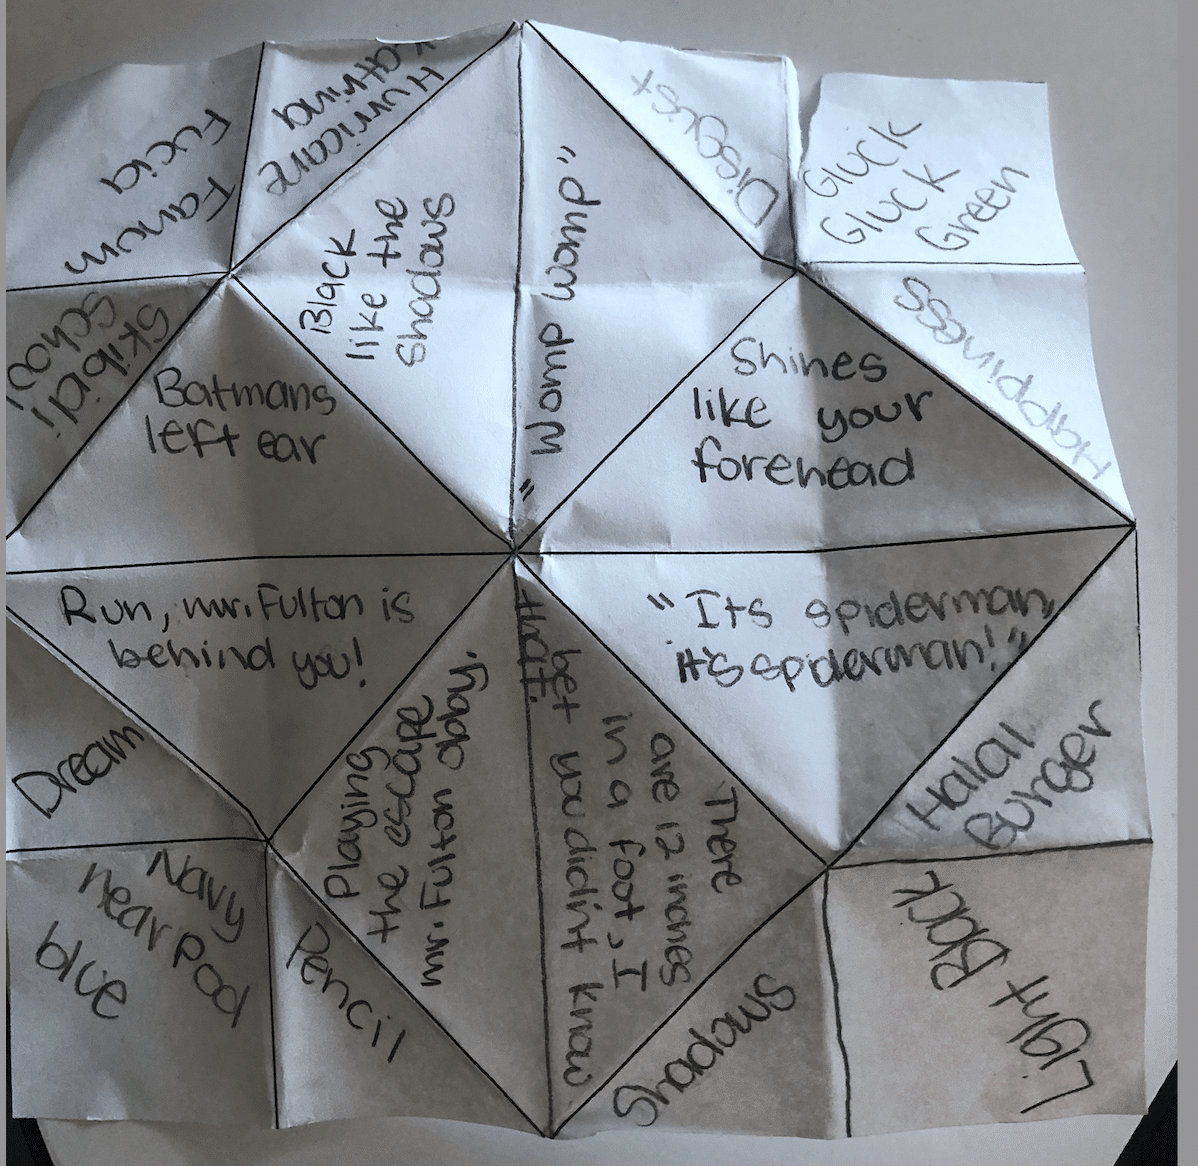 Fanum
Fucia
Hurricane
Katrina
Disgust
Gluck
Gluck
Green
Skibidi
School
Batmans
left ear
Black
like the
shadows
"Womp womp"
Shines
like your
forehead
Happiness
Run, mr. Fulton is
behind you!
Playing
the escape
mr. Fulton obby,
There
are 12 inches
in a foot, I
bet you didn't know
that.
"Its spiderman,
it's spiderman!"
Dream
Navy
near pod
blue
Pencil
Shadows
Halal
Burger
Light Black